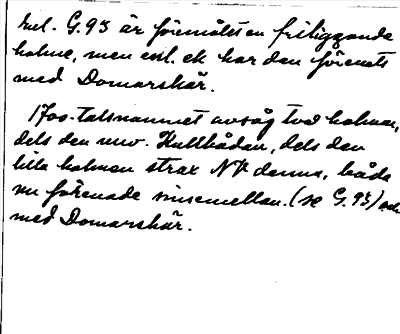 Enl. G.93 är föremålet en friliggande
holme, men enl. ek har den förenats
med Domarskär.
1700-talsnamnet avsåg två holmar,
dels den nuv. Kullbådan, dels den
lilla holmen strax NV denna, båda
nu förenade sinsemellan. (se G.93) och
med Domarskär.